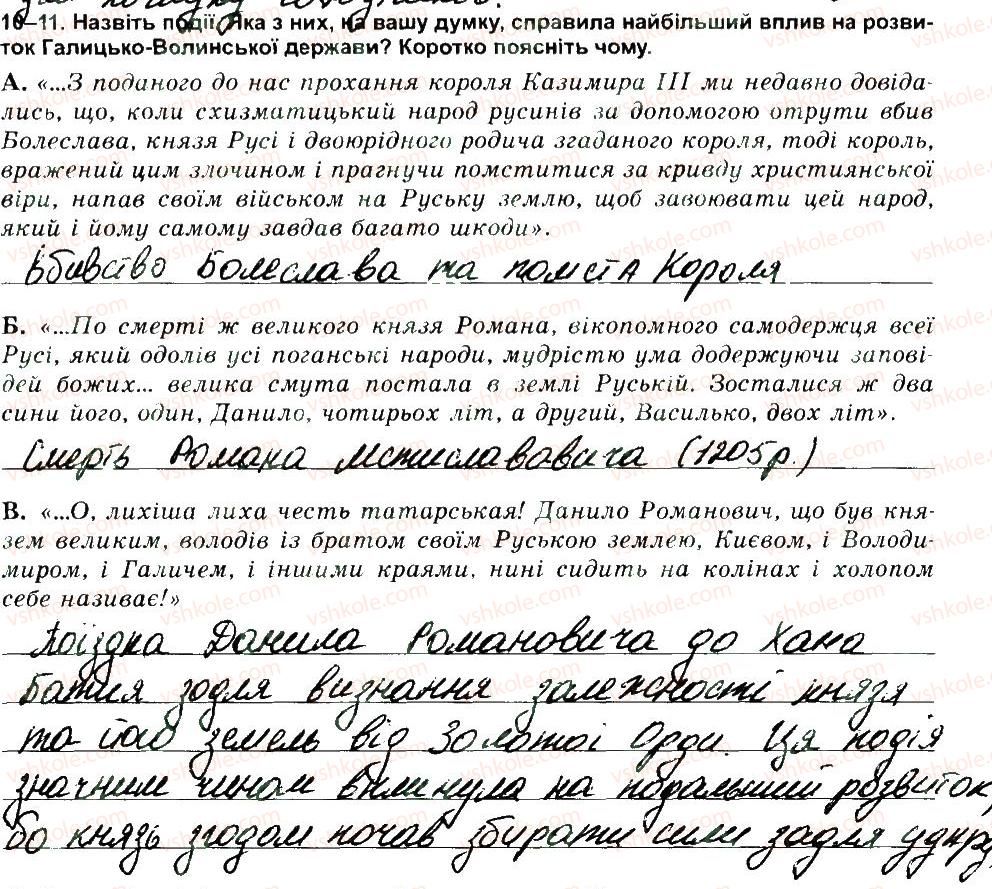 10–11. Назвіть події. Яка з них, на вашу думку, справила найбільший вплив на розви-
ток Галицько-Волинської держави? Коротко поясніть чому.
А. «...З поданого до нас прохання короля Казимира III ми недавно довіда-
лись, що, коли схизматицький народ русинів за допомогою отрути вбив
Болеслава, князя Русі і двоюрідного родича згаданого короля, тоді король,
вражений цим злочином і прагнучи помститися за кривду християнської
віри, напав своїм військом на Руську землю, щоб завоювати цей народ,
який і йому самому завдав багато шкоди».
Вбивство Болеслава та помста Короля
Б. «...По смерті ж великого князя Романа, вікопомного самодержця всеї
Русі, який одолів усі поганські народи, мудрістю ума додержуючи запові-
дей божих... велика смута постала в землі Руській. Зосталися ж два
сини його, один, Данило, чотирьох літ, а другий, Василько, двох літ».
Смерть Романа Мстиславовича (1205р.)
В. «...О, лихіша лиха честь татарськая! Данило Романович, що був кня-
зем великим, володів із братом своїм Руською землею, Києвом, і Володи-
миром, і Галичем, і іншими краями, нині сидить на колінах і холопом
себе називає!»
Поїздка Данила Романовича до Хана
Батия задля визнання залежності князя
та його земель від Золотої Орди. Ця подія
значним чином вплинула на подальший розвиток,
бо князь згодом почав збирати сили задля удару